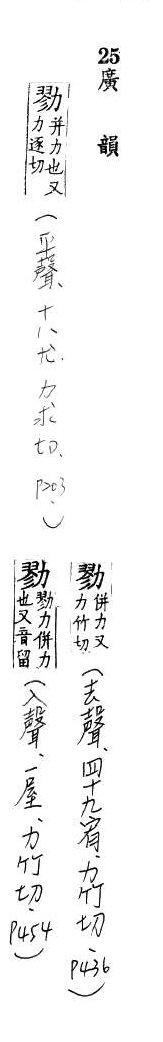 25廣韻
勠并力也又力逐切
(平聲、十八尤.力求切、P203.)
勠併力又力竹切
(去聲、四十九宥、力竹切、P436)
勠勠力併力也又音留
(入聲、一屋、力竹切、P454)